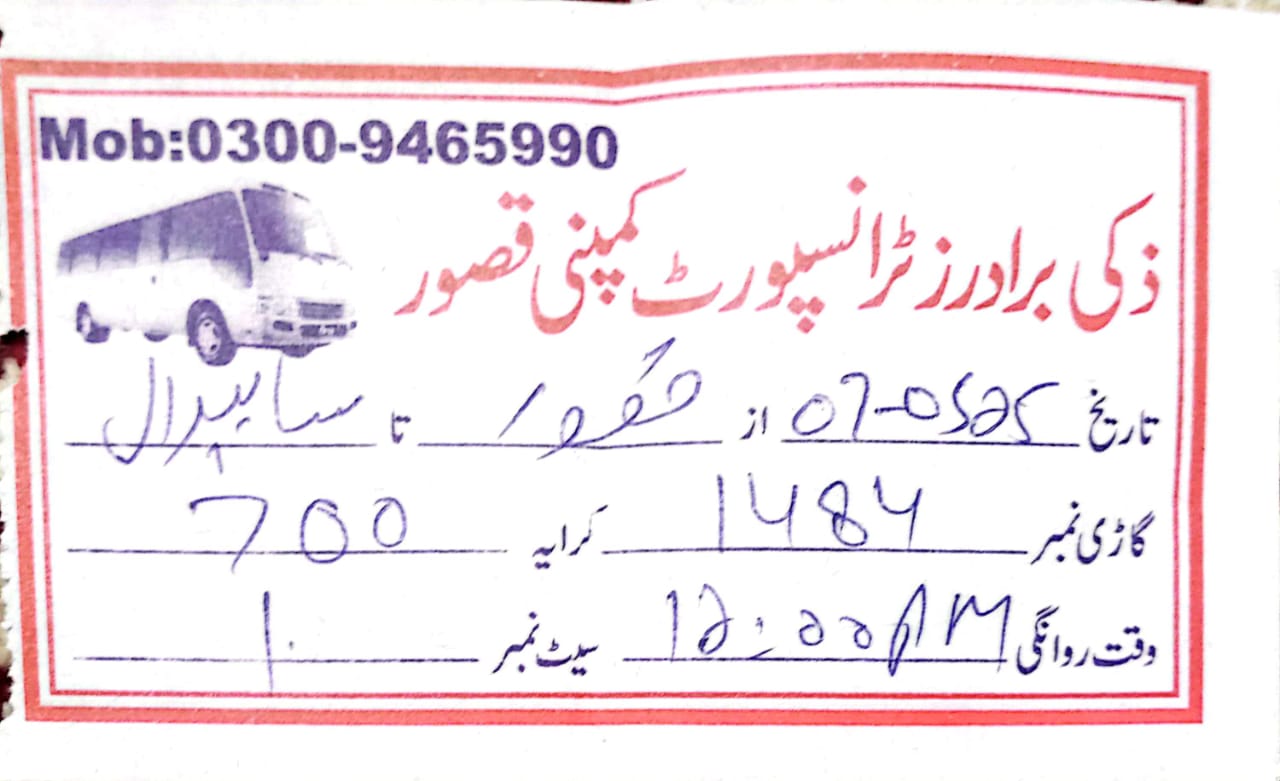 Mob:0300-9465990
ذکی برادرز ٹرانسپورٹ کمپنی قصور
تاریخ 07-0525 از قصور تا ساہیوال
گاڑی نمبر 1484 کرایہ 700
وقت روانگی 12:00 PM سیٹ نمبر 1